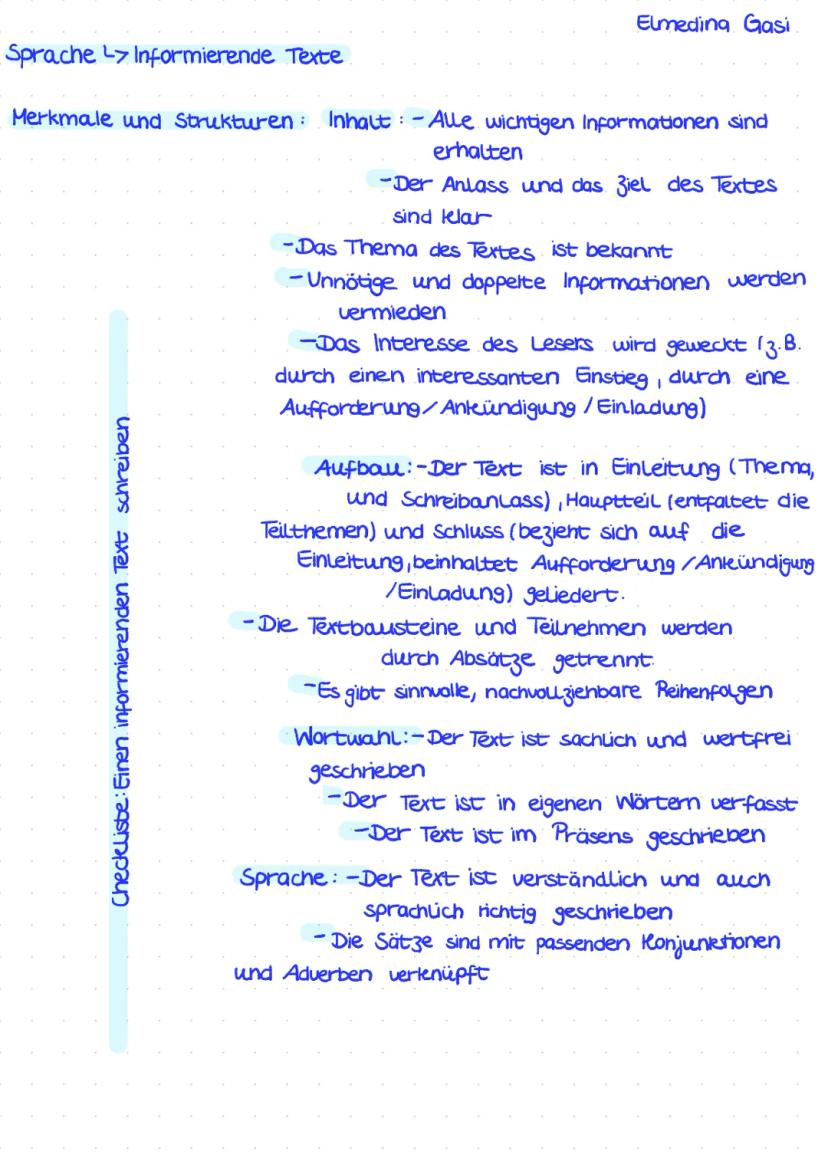 Elmedina Gasi
Sprache ↳ Informierende Texte
Merkmale und Strukturen: Inhalt: - Alle wichtigen Informationen sind
erhalten
- Der Anlass und das Ziel des Textes
sind klar
- Das Thema des Textes ist bekannt
- Unnötige und doppelte Informationen werden
vermieden
- Das Interesse des Lesers wird geweckt (z.B.
durch einen interessanten Einstieg, durch eine
Aufforderung/Ankündigung/Einladung)
Aufbau: - Der Text ist in Einleitung (Thema,
und Schreibanlass), Hauptteil (entfaltet die
Teilthemen) und Schluss (bezieht sich auf die
Einleitung, beinhaltet Aufforderung/Ankündigung
/Einladung) geliedert.
- Die Textbausteine und Teilnehmen werden
durch Absätze getrennt.
- Es gibt sinnvolle, nachvollziehbare Reihenfolgen
Wortwahl: - Der Text ist sachlich und wertfrei
geschrieben
- Der Text ist in eigenen Wörtern verfasst
- Der Text ist im Präsens geschrieben
Sprache: - Der Text ist verständlich und auch
sprachlich richtig geschrieben
- Die Sätze sind mit passenden Konjunktionen
und Adverben verknüpft
Checkliste: Einen informierenden Text schreiben